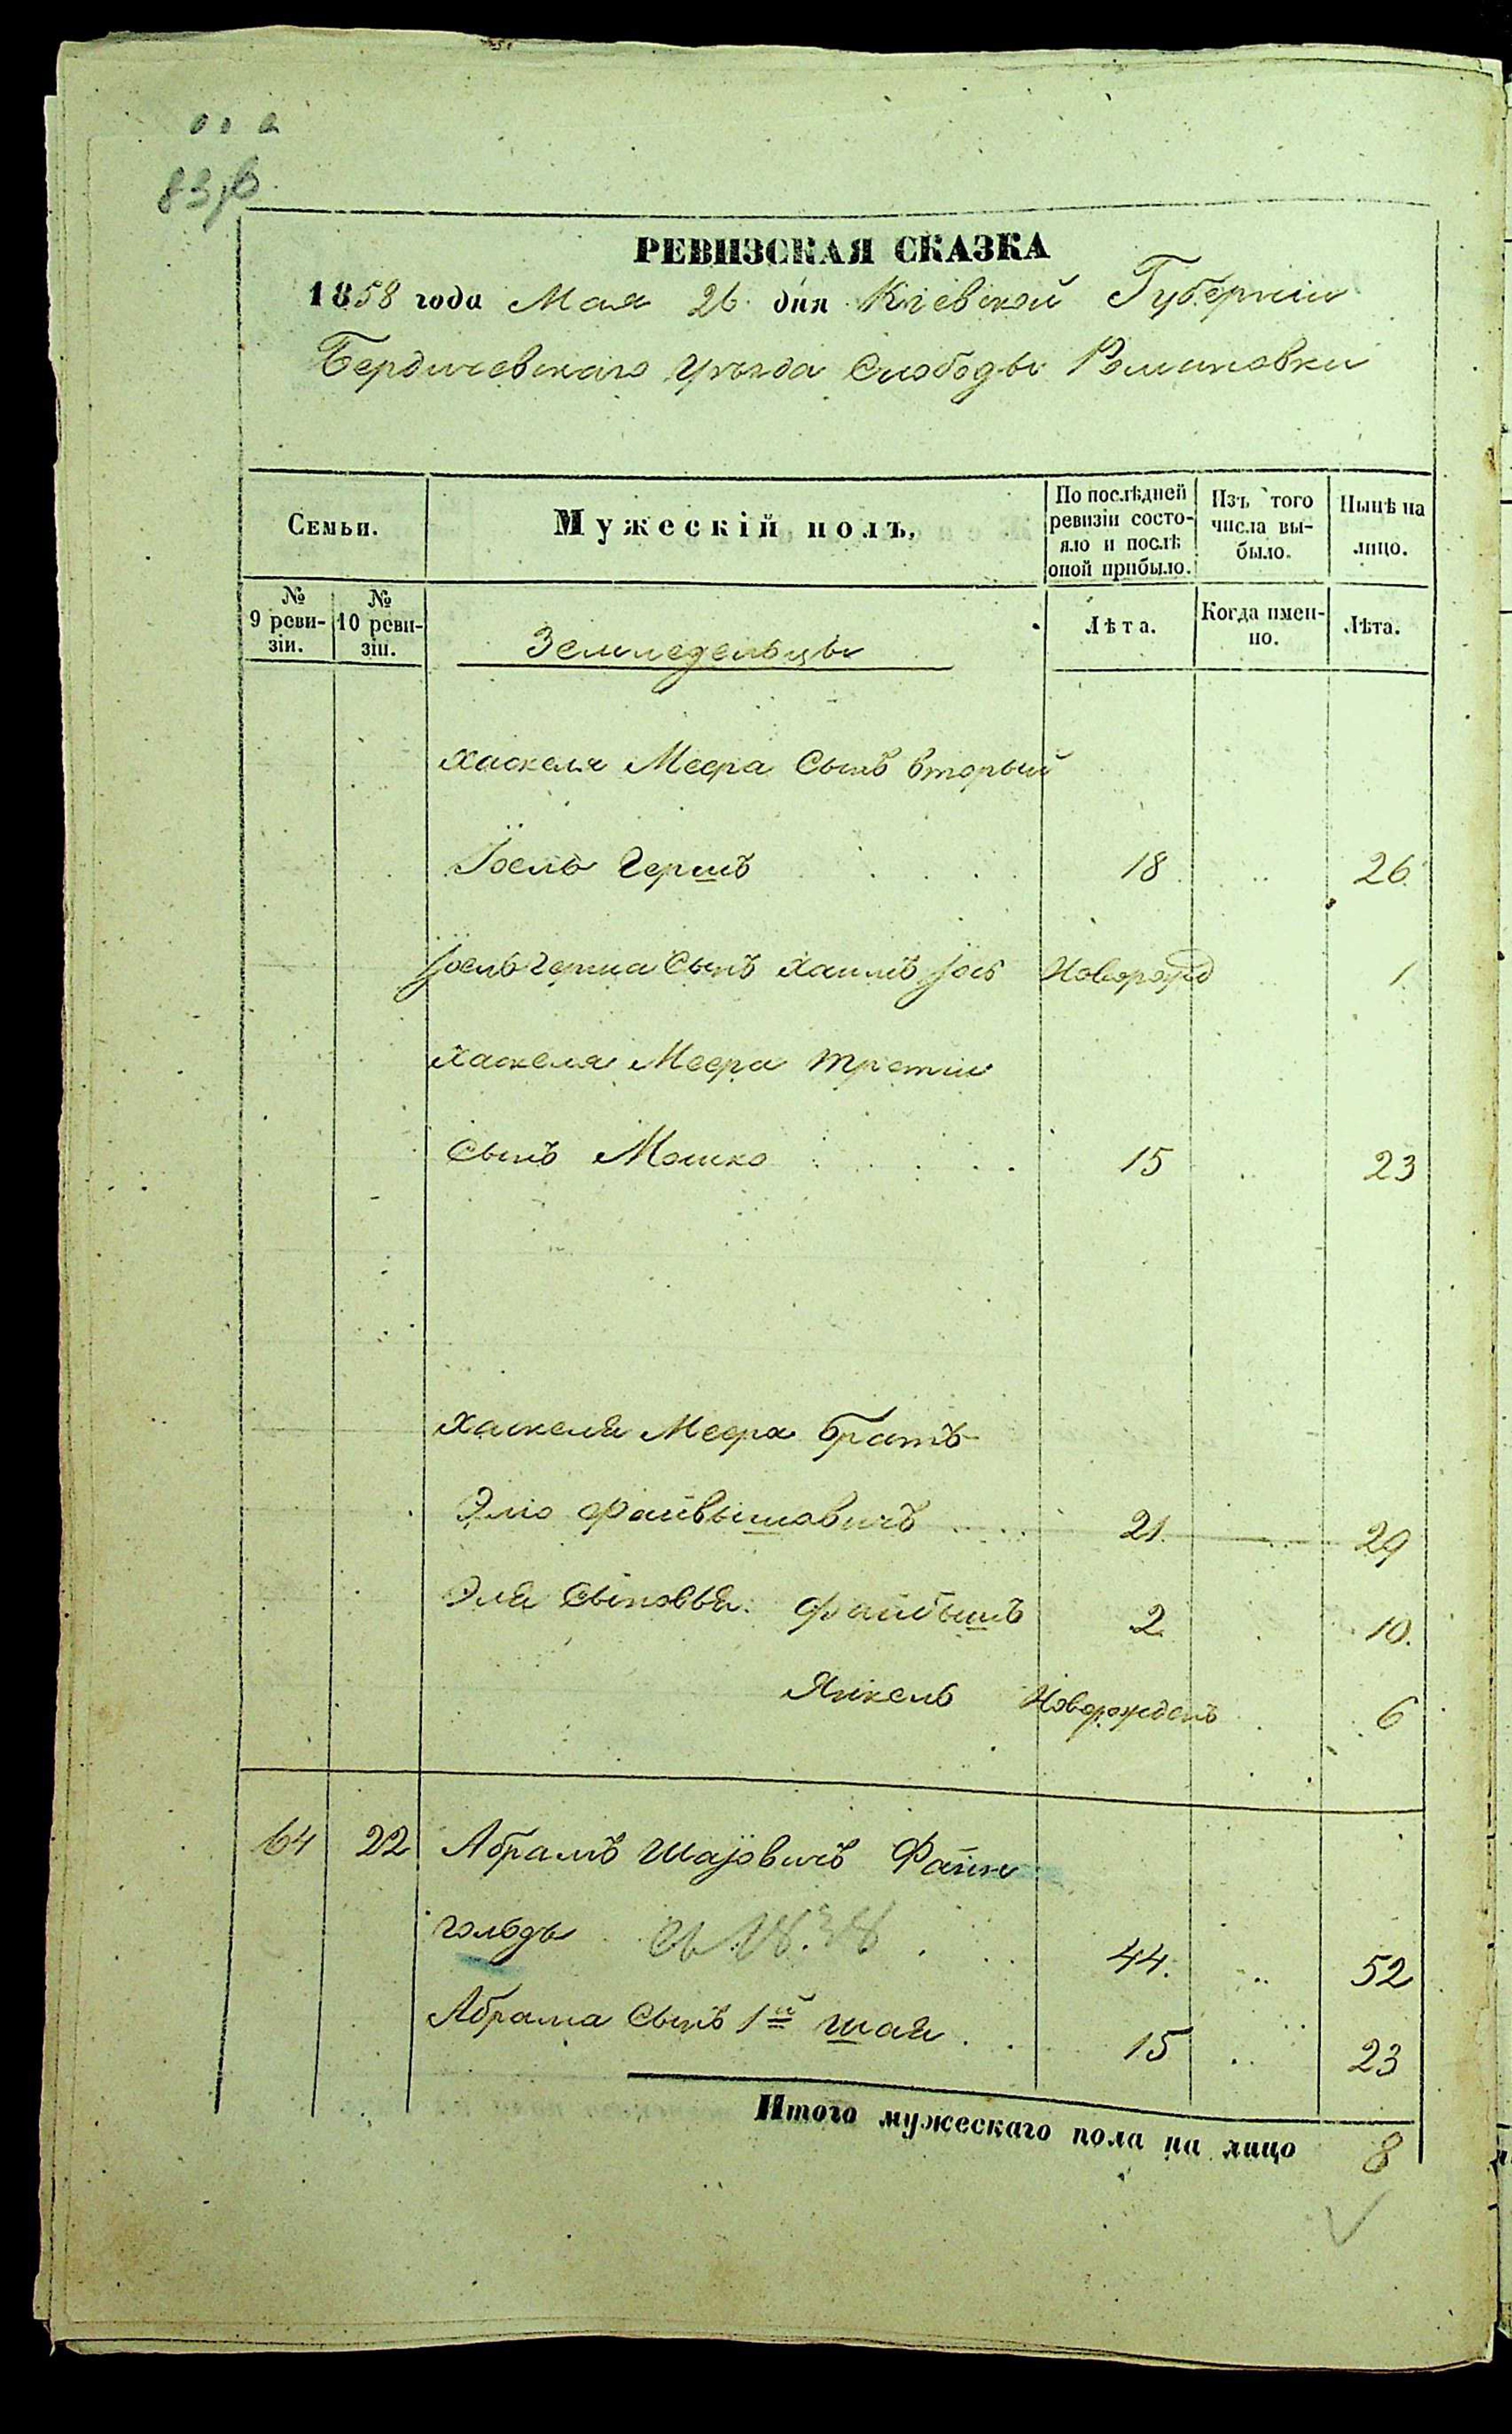 РЕВИЗСКАЯ СКАЗКА
1858 года Мая 26 дня Кіевской Губерніи
Бердичевскаго Уѣзда Слободы Романовки
Семьи.
Мужескій полъ.
По послѣдней ревизіи состо-
яло и послѣ оной прибыло.
Изъ того числа вы-
было.
Нынѣ на лицо.
№ 9 реви-
зіи.
№ 10 реви-
зіи.
Земледельцы
Лѣта.
Когда имен-
но.
Лѣта.
Хаскеля Меера Сынъ вторый
Іоель Гершъ 18 26
Іоель Герша Сынъ Хаимъ Іось Новорожд 1
Хаскеля Меера третіи
Сынъ Мошко 15 23
Хаскеля Меера братъ
Эліо Файвышовичъ 21 29
Эля Сыновья: Файвышъ 2 10.
Янкель Новорожденъ 6
64 22 Абрамъ Шаіовичъ Файн
гольдъ 1838 44. 52
Абрама Сынъ 1й Шая 15 23
Итого мужескаго пола на лицо 8